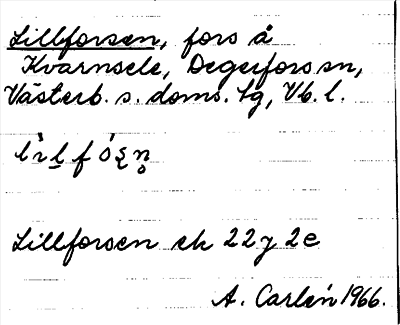 Lillforsen, fors å
Kvarnsele, Degerfors sn,
Västerb. s. doms. tg, Vb. l.
Lillforsen ek 22 J 2e
A. Carlén 1966.